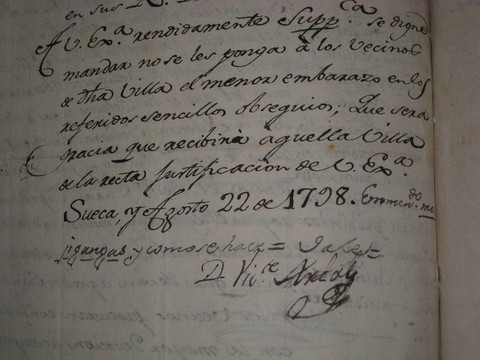 en sus
A V. Ex.ª rendidamente Supp.ca se digne
mandar no se les ponga â los Vecinos
de dha Villa el menor embarazo en los
referidos sencillos obsequios; Que sera
gracia que recibirá aquella Villa
de la recta justificacion de V. Ex.ª
Sueca, y Agosto 22 de 1798. Enmend.do mo
jigangas y como se hace = Vale =
D. Vic.te